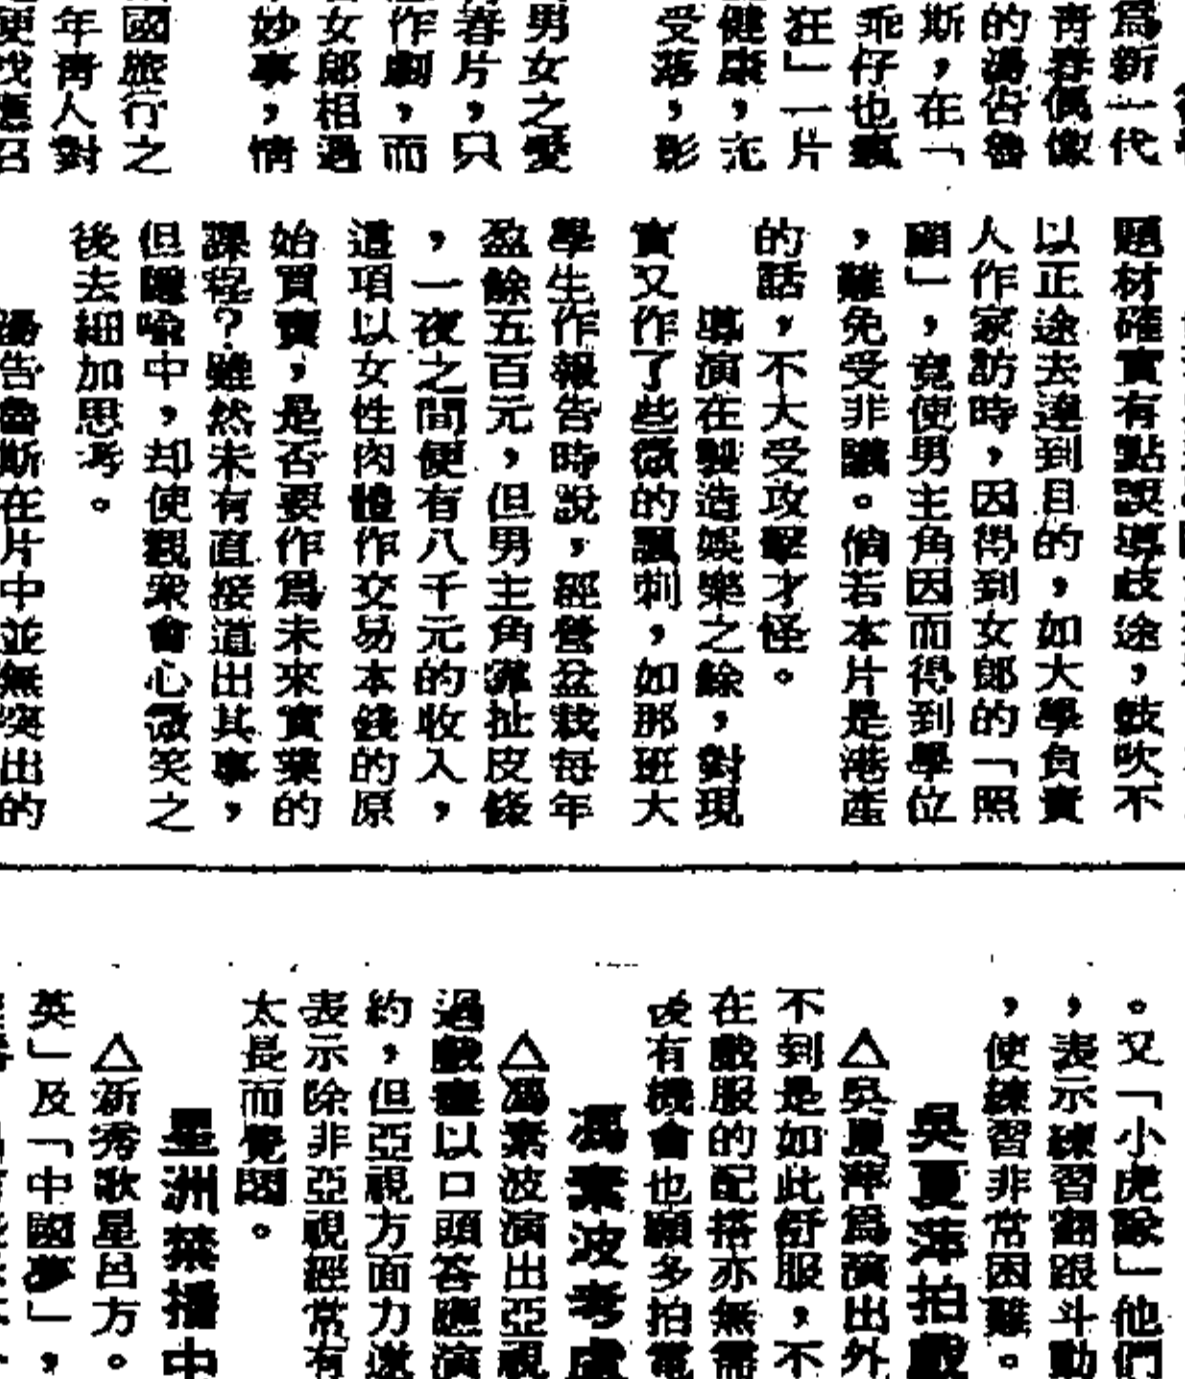 爲新一代
青春偶像
的湯告魯
斯，在「
乖仔也瘋
狂」一片
健康，充
受落，影
男女之愛
青春片，只
作劇，而
女郎相遇
妙事，情
國旅行之
年青人對
便找應召
題材確實有點誤導歧途，鼓吹不
以正途去達到目的，如大學負責
人作家訪時，因得到女郎的「照
顧」，竟使男主角因而得到學位
，難免受非議。倘若本片是港產
的話，不大受攻擊才怪。
導演在製造娛樂之餘，對現
實又作了些微的諷刺，如那班大
學生作報告時說，經營盆栽每年
盈餘五百元，但男主角靠扯皮條
，一夜之間便有八千元的收入，
這項以女性肉體作交易本錢的原
始買賣，是否要作爲未來實業的
課程？雖然未有直接道出其事，
但隱喩中，却使觀衆會心微笑之
後去細加思考。
湯告魯斯在片中並無突出的
。又「小虎隊」他們
，表示練習翻跟斗動
，使練習非常困難。
吳夏萍拍戲
△吳夏萍爲演出外
不到是如此舒服，不
在戲服的配搭亦無需
後有機會也願多拍電
馮素波考慮
△馮素波演出亞視
過戲癮以口頭答應演
約，但亞視方面力邀
表示除非亞視經常有
太長而覺悶。
星洲禁播中
△新秀歌星呂方。
英」及「中國夢」，